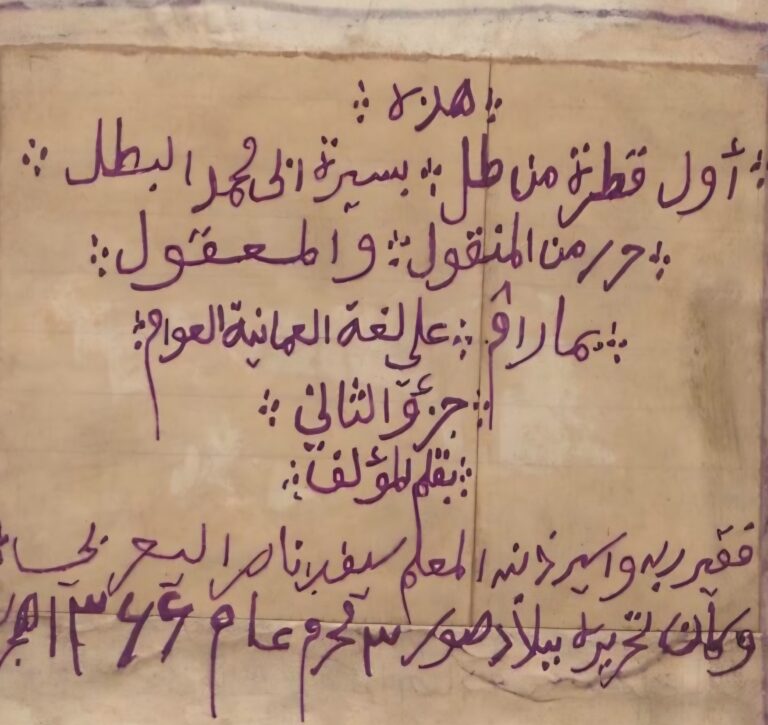 هذه
أول قطرة من طل بسيرة ابي محمد البطل
حرر من المنقول والمعقول
بما راق على لغة العمانية العوام
جزؤ الثاني
بقلم المؤلف
فقير ربه واسير ذنبه المعلم سيف بن ناصر
وكان تحريره ببلاد صور ٣ محرم عام ١٣٦٦